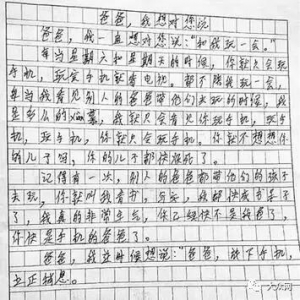 爸爸,我想对你说
爸爸,我一直想对您说:“和我玩一会。”
每当星期六和星期天的时候,你就只会玩
手机,玩完手机就看电视。都不陪我玩一会,
每当我看见别人的爸爸带他们去玩的时候,我
是多么的羡慕,我就只会看见你玩手机,玩手
机,玩手机,你就只会玩手机。你就不想想你
的儿子吗,你的儿子都快疯了。
记得有一次,别人的爸爸都带他们的孩子
去玩,你就叫我看书,写字,我都快成书呆子
了,我真的非常生气,你已经快不是我爸爸了,
你快是手机的爸爸了。
爸爸,我这时候想说:“爸爸,放下手机,
立正稍息。
大众网